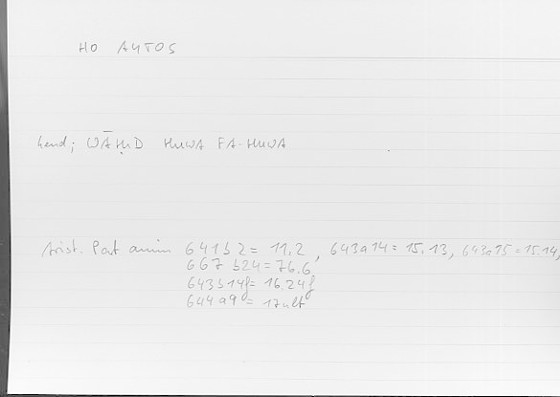 HO AUTOS
hend; WĀḤID HUWA FA-HUWA
Arist. Part anim 641b2 = 11.2, 643a14 = 15.13, 643a15 = 15.14,
667b24 = 76.6
643b14f = 16.24f
644a9 = 17ult